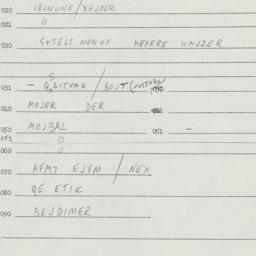 020 VEJNUNG/XEJDER
021 0
030 S+TELT MEN UF HEXERE HAJZER
031 - QRITVAK/BOJT
040 MOJER DER
050 MOJ3RL 051 -
052 0
060 0
070 AFM7 EJVM/NEX
080 QE ETIK
090 BEJDIMER